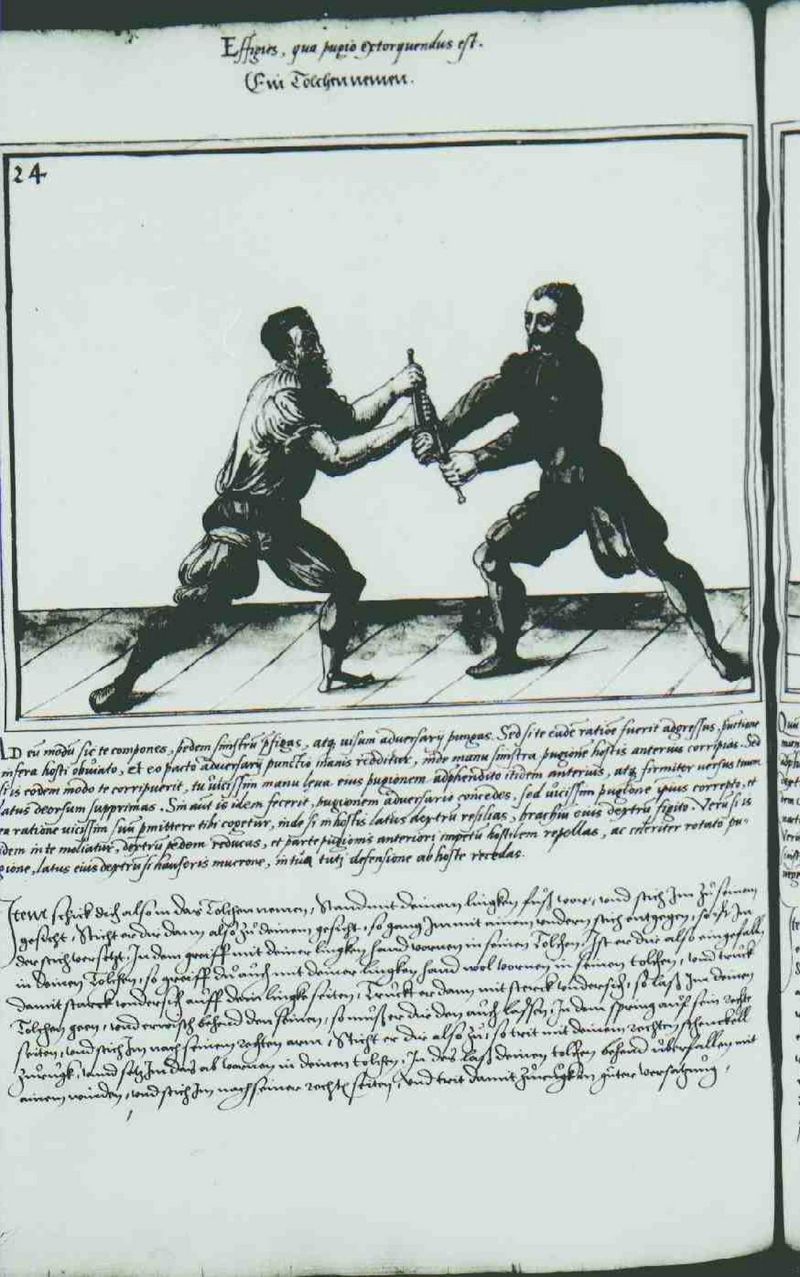 Effigies, qua pugio extorquendus est.
Ein Tolchen nemen.
24
AD eu modu sic te compones, pedem sinistru pfigas, atq visum adversarij pungas. Sed si te eade ratioe fuerit adgressus, puctione
infera hosti obviato, et eo pacto adversarij punctio inanis redditur, inde manu sinistra pugione hostis anterius corripias. Sed
si is eodem modo te corripuerit, tu vicissim manu leva eius pugionem adphendito itidem anterius, atq firmiter versus tuum
latus deorsum supprimas. Sin aut is idem fecerit, pugionem adversario concedes, sed vicissim pugione ipsius correpto, et
ea ratione vicissim suu pmittere tibi cogetur, inde si in hostis latus dextru resilias, brachiu eius dextru figito. Veru si is
idem in te moliatur, dextru pedem reducas, et parte pugionis anteriori impetu hostilem repellas, ac celeriter rotato pu-
gione, latus eius dextru si hauseris mucrone, in tua tuti defensione ab hoste recedas.
Item schick dich also in das Tolchen nemen, Stand mit deinem lingken fuß vorr, und stich Im zu seinem
gesicht, Sticht er dir dann also zu deinem gesicht, so gang Im mit ainem undern stich entgegen, so ist Im
der stich versetzt, In dem greiff mit deiner lingken hand vornen in seinen Tolchen, Ist er dir also eingefalln
in deinen Tolchen, so greiff du auch mit deiner lingken hand wol vornen in seinen tolchen, und truck
damit starck undersich auff dein lingke seiten, Truckt er dann mit sterck undersich, so laß Im deinen
Tolchen geen, und erwisch behend den seinen, so muß er dir den auch lassen, In dem spring auf sein rechte
seiten, und stich Im nach seinem rechten arm, Sticht er dir also zu, so trit mit deinem rechten schenckell
zurugk, und setz Im das ab vornen in deinen tolchen, In des laß deinen tolchen behend uberfallen mit
ainem winden, und stich Im nach seiner rechten seiten, und trit damit zurugk in guter versatzung,